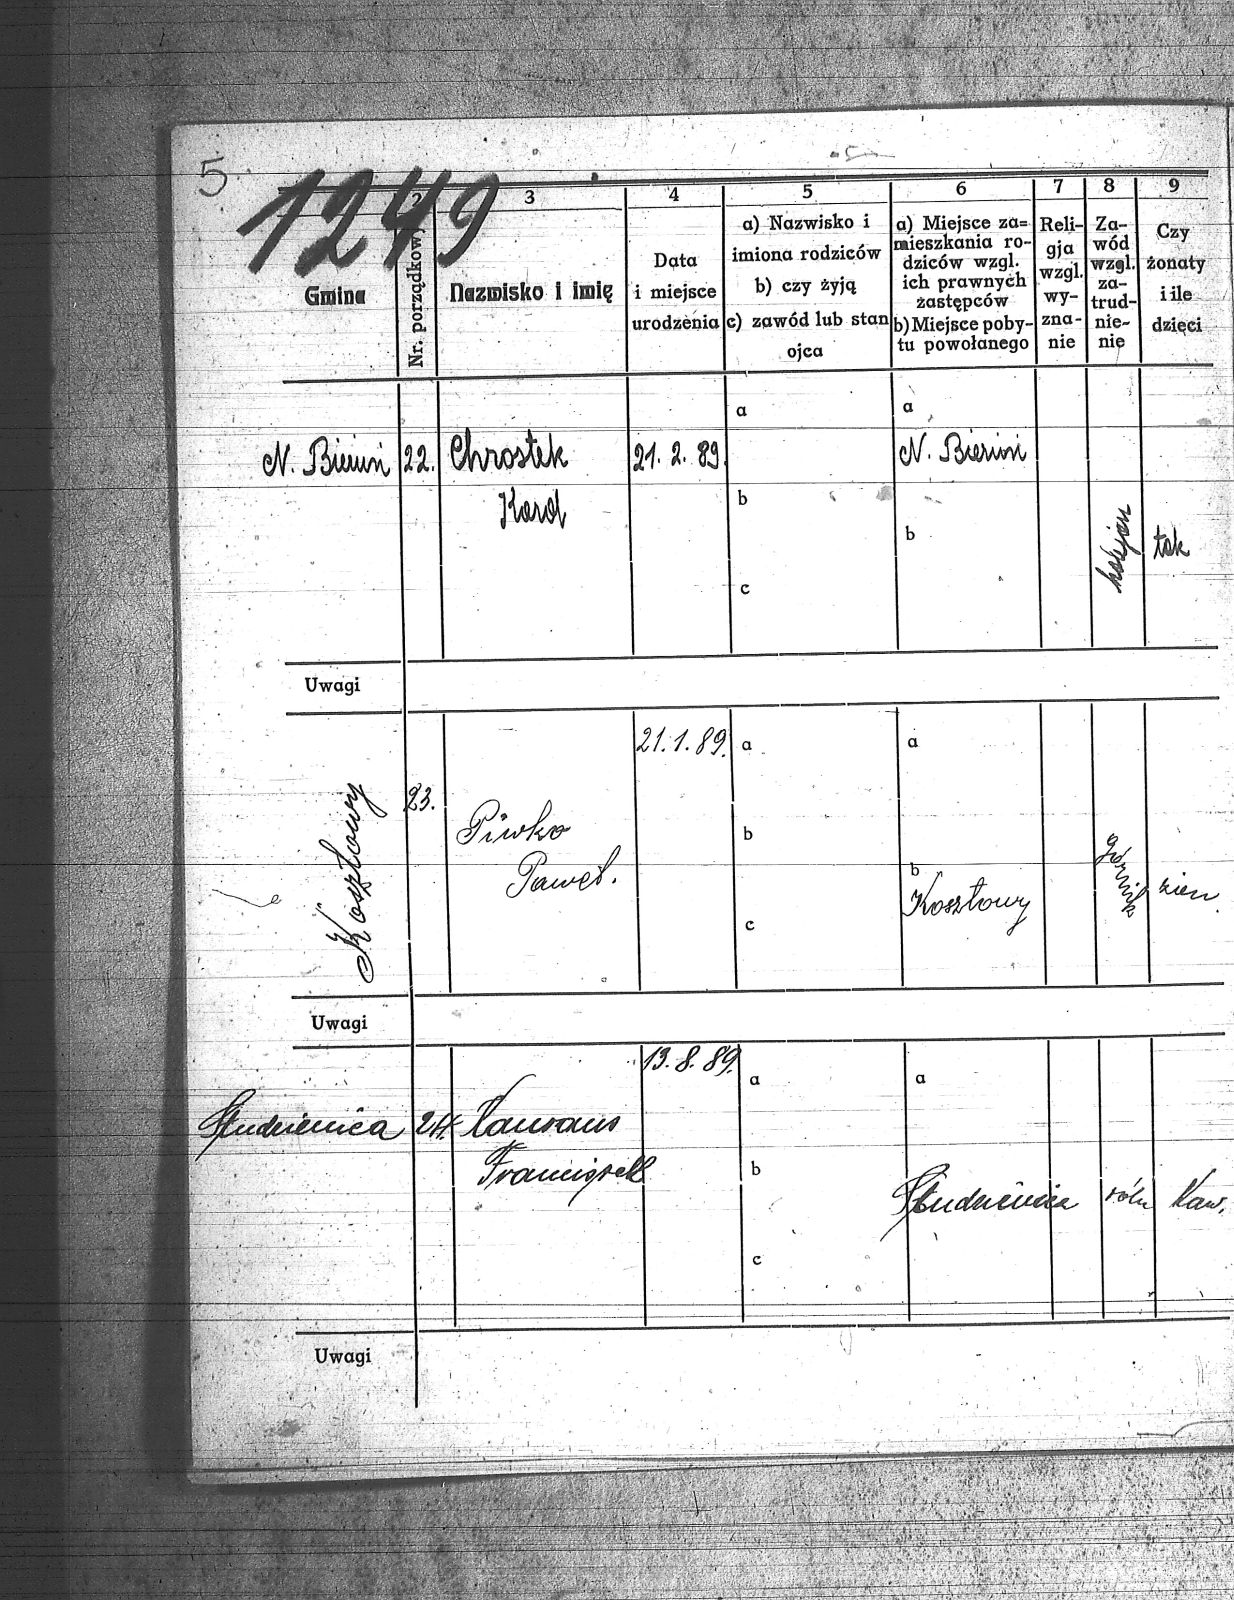 5
1249
2
3
4
5
6
7
8
9
Gmina
Nr. porządkowy
Nazwisko i imię
Data
i miejsce
urodzenia
a) Nazwisko i
imiona rodziców
b) czy żyją
c) zawód lub stan
ojca
a) Miejsce za=
mieszkania ro-
dziców wzgl.
ich prawnych
zastępców
b) Miejsce poby-
tu powołanego
Reli-
gja
wzgl.
wy-
zna-
nie
Za-
wód
wzgl.
za-
trud-
nie-
nie
Czy
żonaty
i ile
dzieci
N. Bieruń
22.
Chrostek
Karol
21. 2. 89.
a
b
c
a
N. Bieruń
b
kolejarz
tak
Uwagi
Kosztowy
23.
Piwko
Paweł.
21. 1. 89.
a
b
c
a
b
Kosztowy
górnik
Uwagi
Studzienica
24.
Franciszek
13. 8. 89.
a
b
c
a
Studzienica
roln
Kaw.
Uwagi